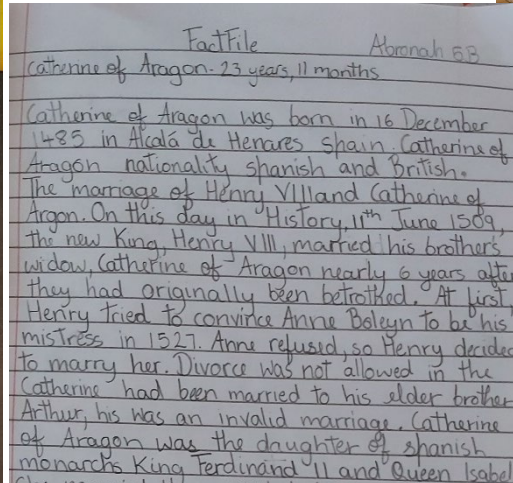 FactFile Abronah 5B
Catherine of Aragon. 23 years, 11 months
Catherine of Aragon was born in 16 December
1485 in Alcalá de Henares spain. Catherine of
Aragon nationality spanish and British.
The marriage of Henry VIII and Catherine of
Argon. On this day in History, 11th June 1509,
the new King, Henry VIII, married his brother's
widow, Catherine of Aragon nearly 6 years after
they had originally been betrothed. At first,
Henry tried to convince Anne Boleyn to be his
mistress in 1527. Anne refused, so Henry decided
to marry her. Divorce was not allowed in the
Catherine had been married to his elder brother
Arthur, his was an invalid marriage. Catherine
of Aragon was the daughter of spanish
monarchs King Ferdinand II and Queen Isabel